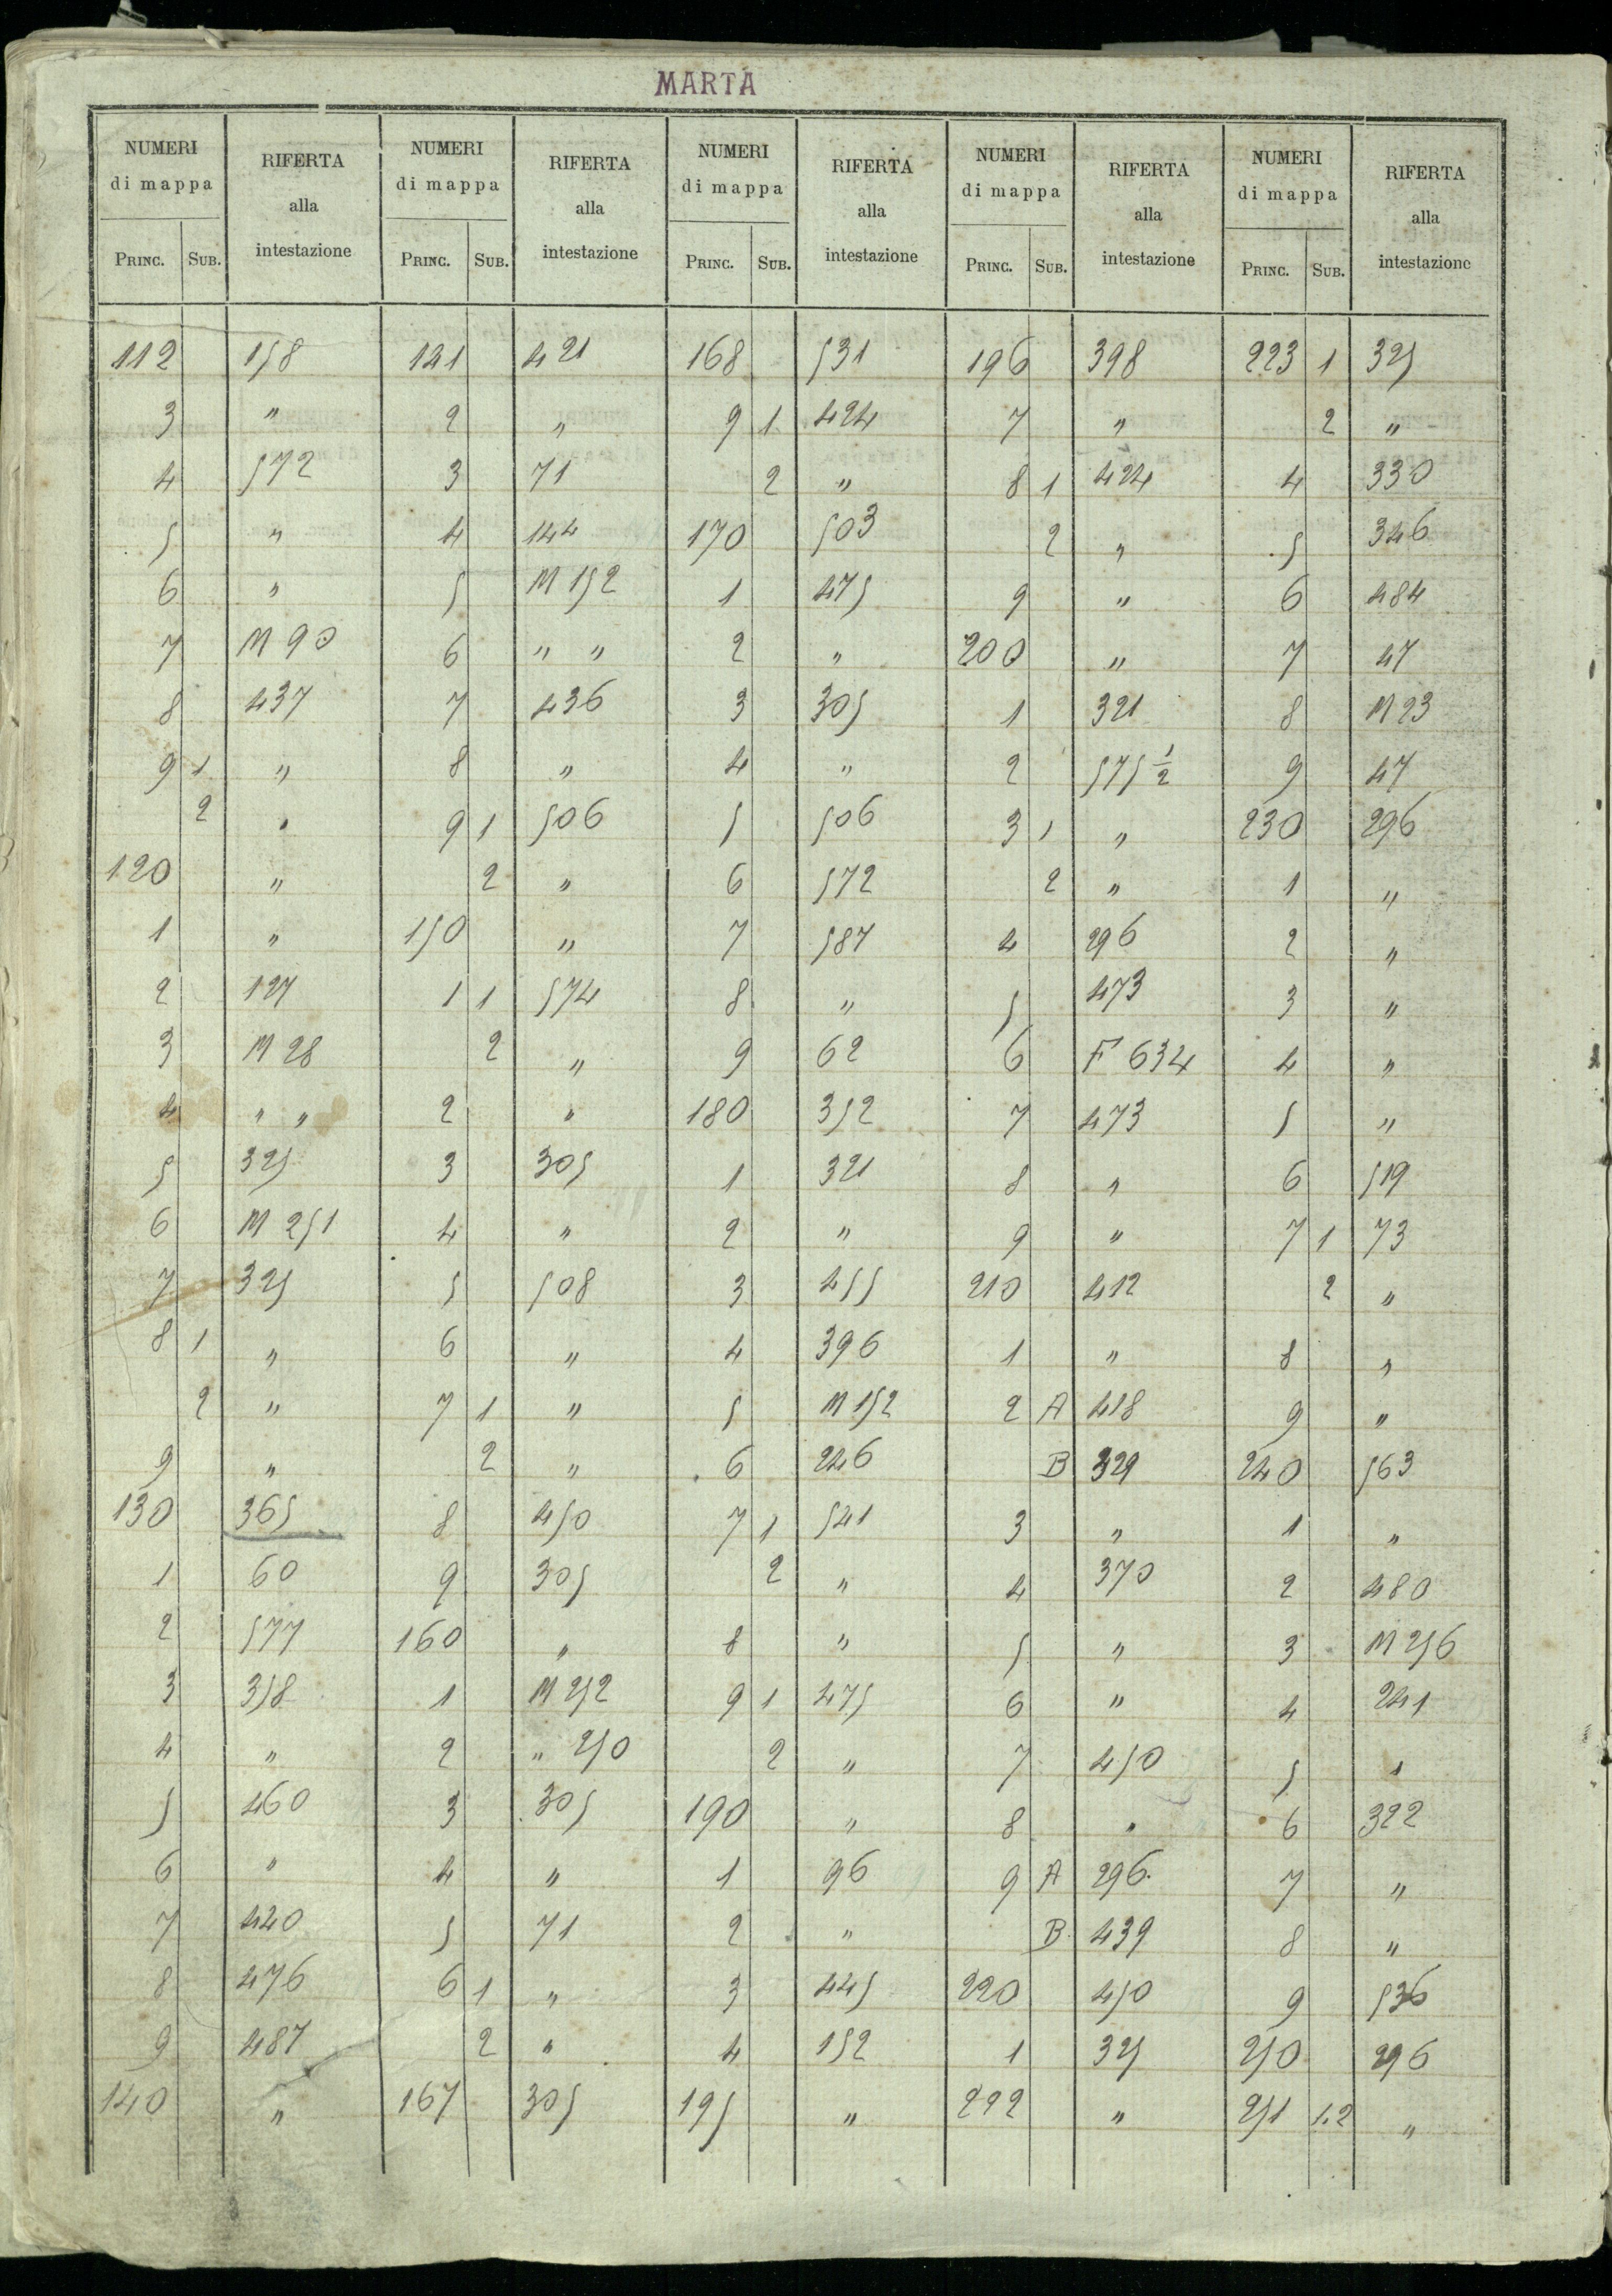 MARTA
NUMERI di mappa RIFERTA alla intestazione NUMERI di mappa RIFERTA alla intestazione NUMERI di mappa RIFERTA alla intestazione NUMERI di mappa RIFERTA alla intestazione NUMERI di mappa RIFERTA alla intestazione
PRINC. SUB. PRINC. SUB. PRINC. SUB. PRINC. SUB. PRINC. SUB.
112 158 141 421 168 531 196 398 223 1 325
3 " 2 " 9 1 424 7 " 2 "
4 572 3 71 2 " 8 1 424 4 330
5 " 4 144 170 503 2 " 5 346
6 " 5 M 152 1 475 9 " 6 484
7 M 90 6 " " 2 " 200 " 7 47
8 437 7 436 3 305 1 321 8 M 23
9 1 " 8 " 4 " 2 575 1/2 9 47
2 " 9 1 506 5 506 3 1 " 230 296
120 " 2 " 6 572 2 " 1 "
1 " 150 " 7 587 4 296 2 "
2 127 1 1 574 8 " 5 473 3 "
3 M 28 2 " 9 62 6 F 634 4 "
4 " " 2 " 180 352 7 473 5 "
5 325 3 305 1 321 8 " 6 519
6 M 251 4 " 2 " 9 " 7 1 73
7 325 5 508 3 455 210 412 2 "
8 1 " 6 " 4 396 1 " 8 "
2 " 7 1 " 5 M 152 2 A 418 9 "
9 " 2 " 6 246 B 329 240 563
130 365 8 450 7 1 541 3 " 1 "
1 60 9 305 2 " 4 370 2 480
2 577 160 " 8 " 5 " 3 M 256
3 358 1 M 252 9 1 475 6 " 4 241
4 " 2 " 250 2 " 7 450 5 "
5 460 3 305 190 " 8 " 6 322
6 " 4 " 1 96 9 A 296 7 "
7 420 5 71 2 " B 439 8 "
8 476 6 1 " 3 445 220 450 9 536
9 487 2 " 4 152 1 325 250 296
140 " 167 305 195 " 222 " 251 1.2 "